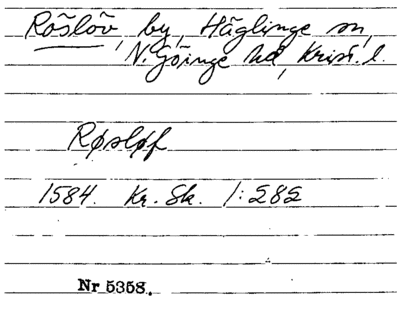 Röslöv, by, Häglinge sn,
N. Göinge hd, Krist. l.
Røsløf
1584. Kr. Sk. 1:282
Nr 5358.